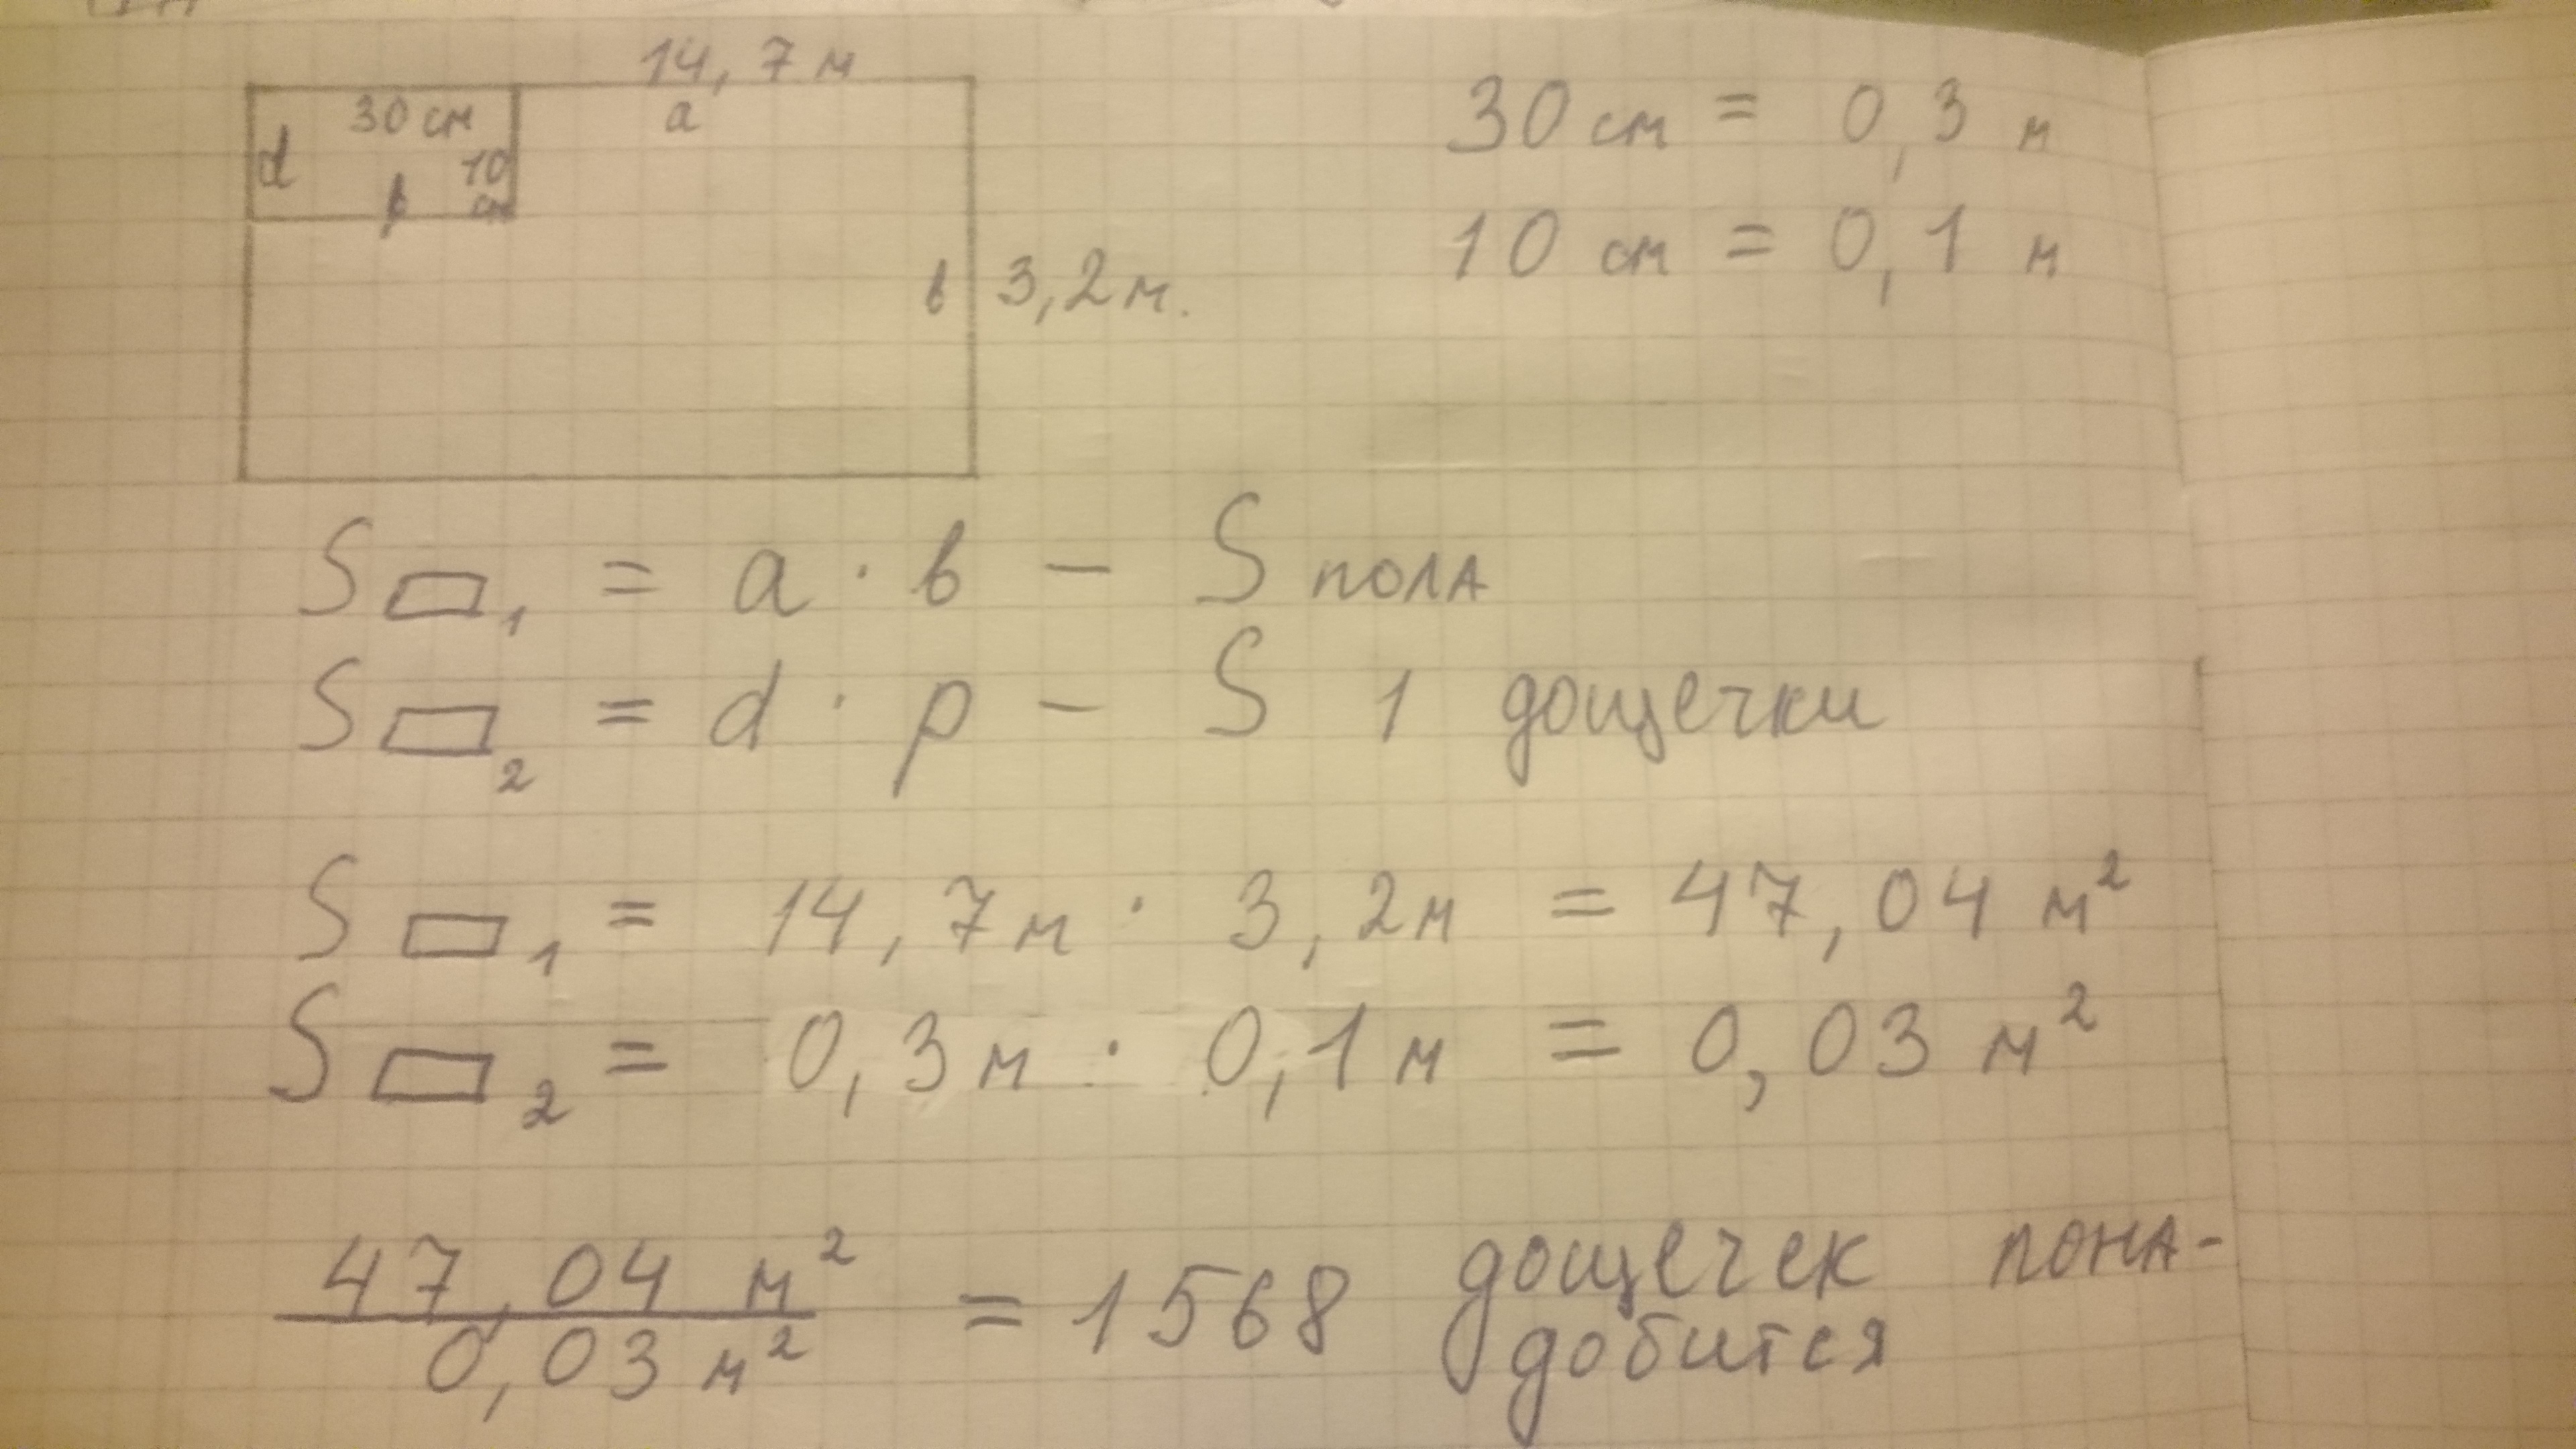 14,7 м
30 см
a
d
10
р
см
в 3,2 м.
30 см = 0,3 м
10 см = 0,1 м
S▭₁ = a · в – S пола
S▭₂ = d · p – S 1 дощечки
S▭₁ = 14,7м · 3,2м = 47,04 м²
S▭₂ = 0,3м · 0,1м = 0,03 м²
47,04 м²
0,03 м²
= 1568 дощечек пона-
добится